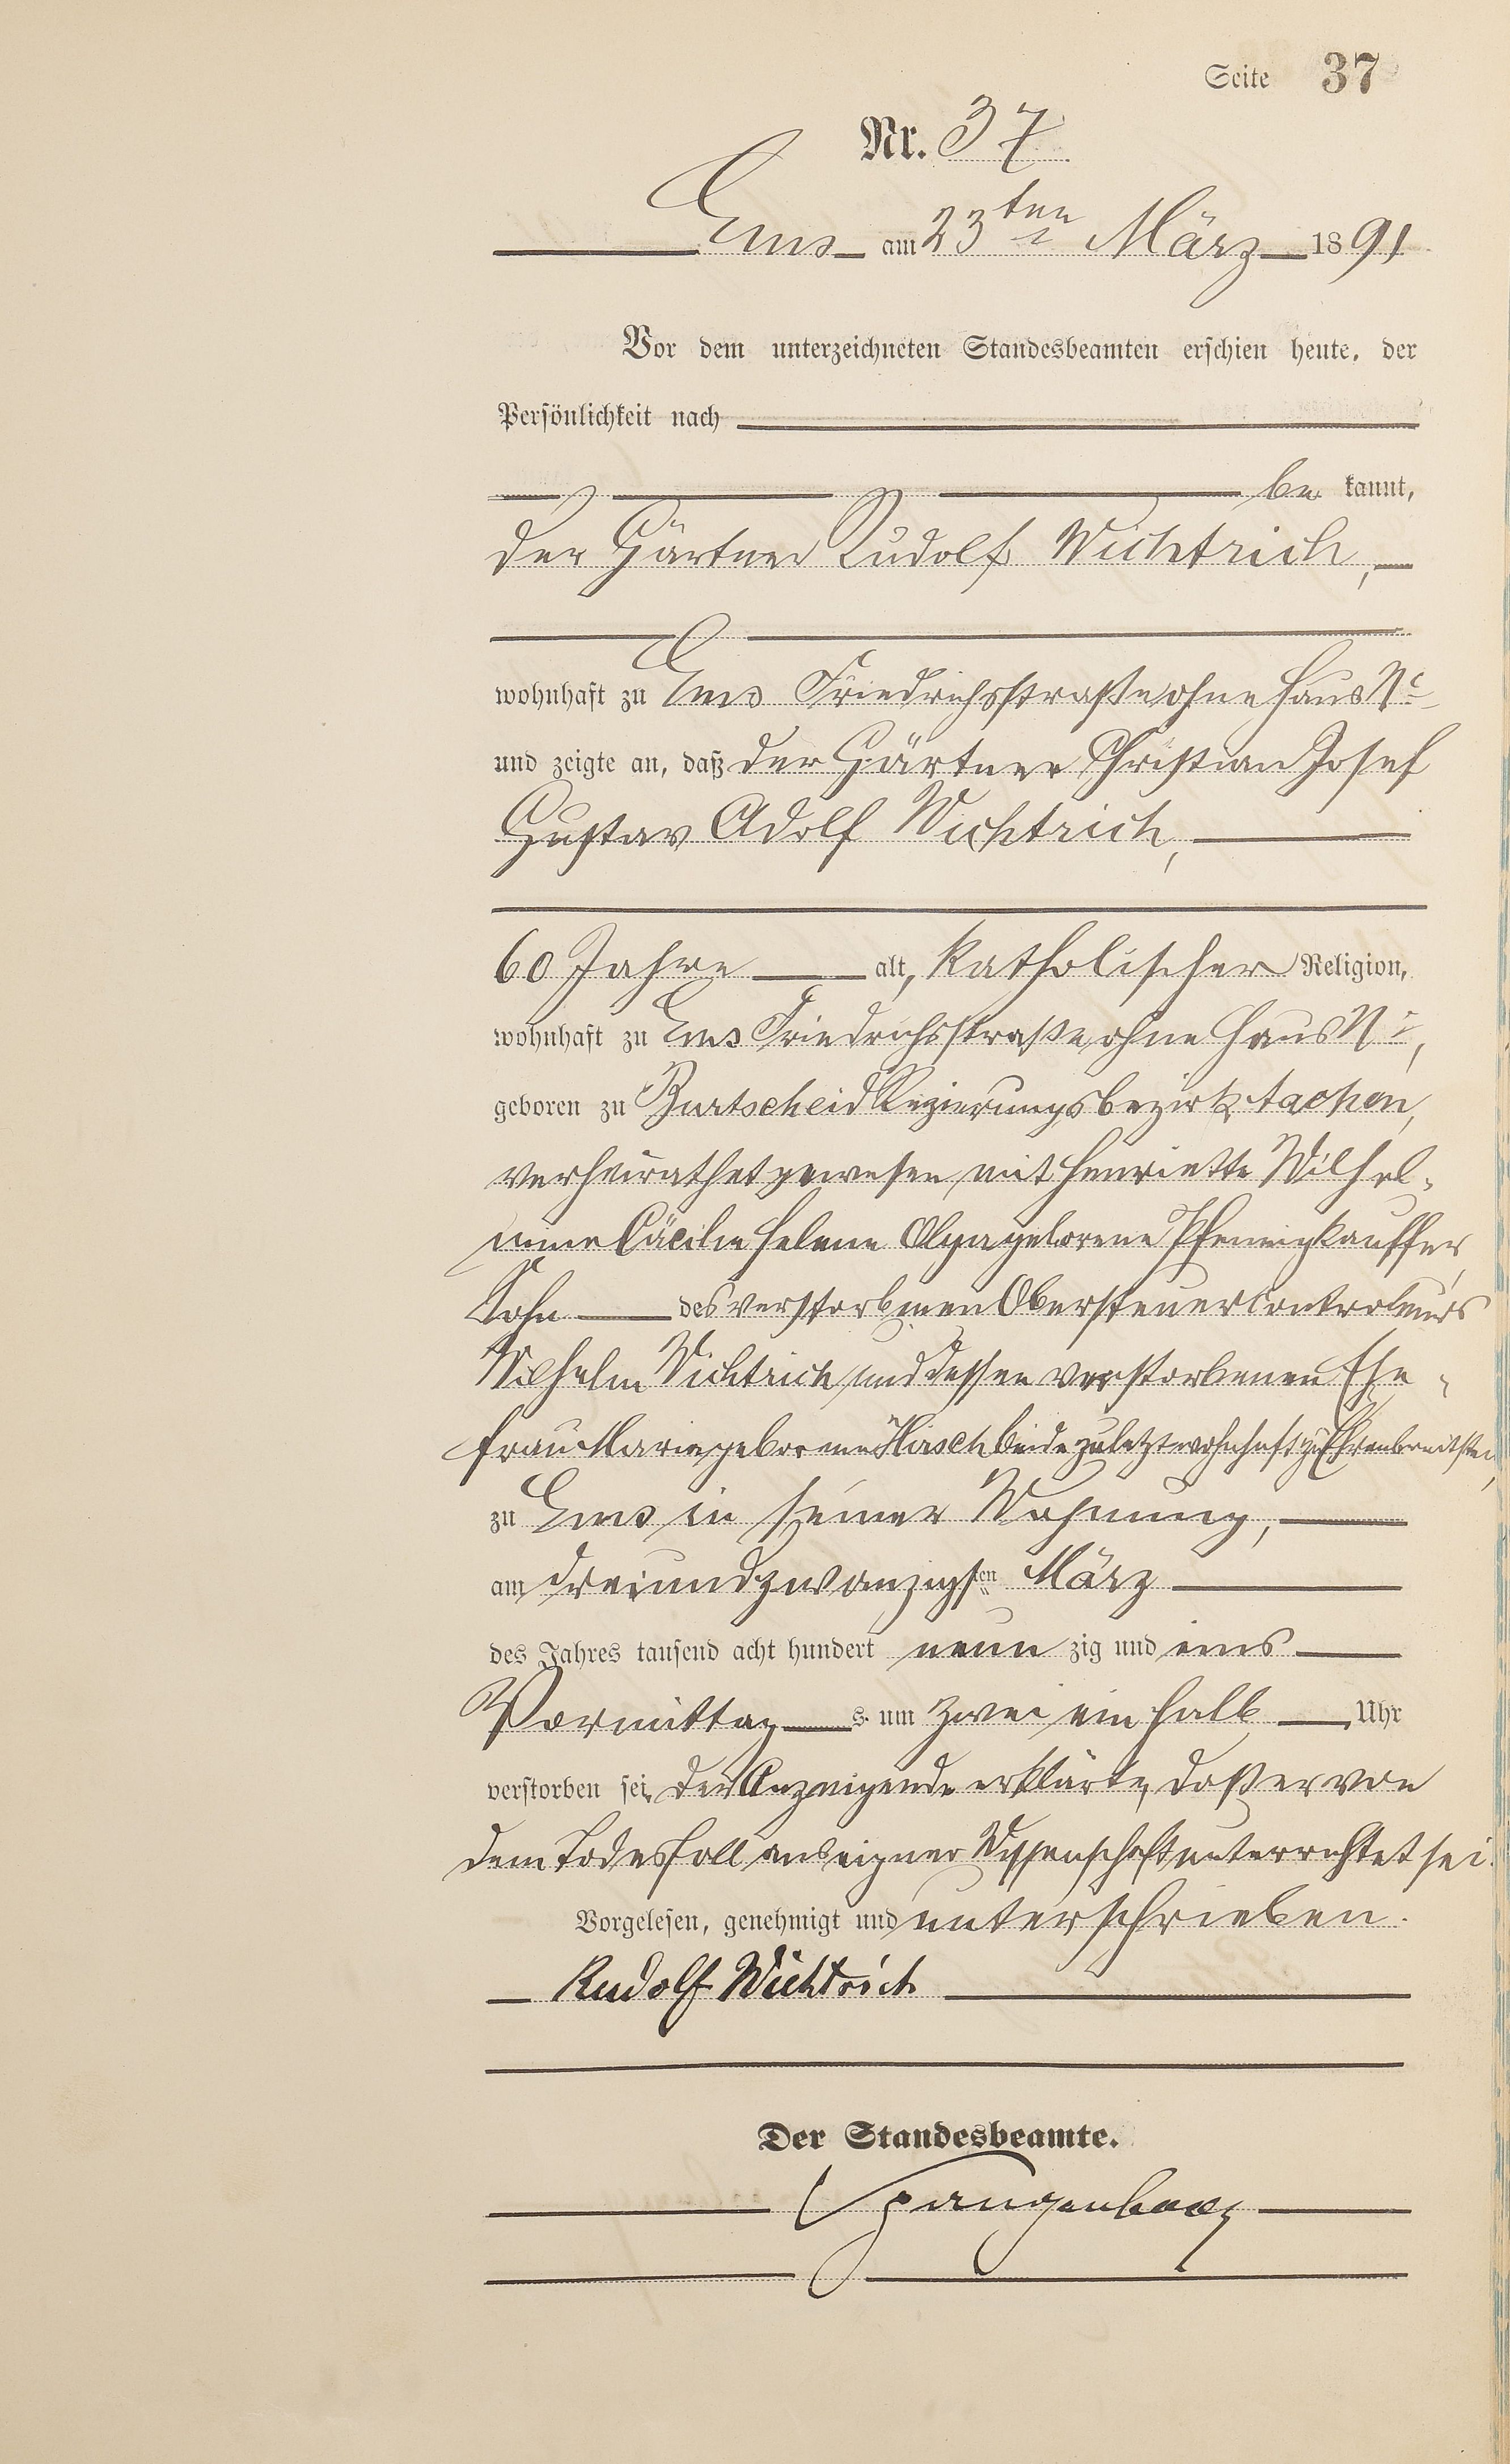 Seite 37
Nr. 37
Ems am 23ten März 1891
Vor dem unterzeichneten Standesbeamten erschien heute, der
Persönlichkeit nach
be kannt,
der Gärtner Rudolf Wichtrich,
wohnhaft zu Ems Friedrichsstraße ohne Haus No
und zeigte an, daß der Gärtner Christian Josef
Gustav Adolf Wichtrich,
60 Jahre alt, katholischer Religion,
wohnhaft zu Ems Friedrichsstraße ohne Haus No,
geboren zu Burtscheid Regierungsbezirk Aachen,
verheirathet gewesen mit Henriette Wilhel-
mine Cäcilie Helene Olga geborene Pfennigkauffer,
Sohn des verstorbenen Obersteuercontroleurs
Wilhelm Wichtrich und dessen verstorbenen Ehe-
frau Maria geborene Hirsch beide zuletzt wohnhaft zu Ehrenbreitstein,
zu Ems in seiner Wohnung,
am dreiundzwanzigsten März
des Jahres tausend acht hundert neun zig und eins
Vormittag s um zwei ein halb Uhr
verstorben sei, der Anzeigende erklärte, daß er von
dem Todesfall aus eigner Wissenschaft unterrichtet sei.
Vorgelesen, genehmigt und unterschrieben.
Rudolf Wichtrich
Der Standesbeamte.
Spangenberg